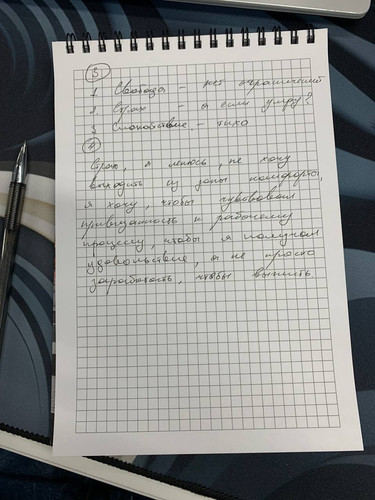 3.
1. Свобода - нет ограничений
2. Страх - а если умру?
3. Спокойствие - тихо
4
Страх, я ленюсь, не хочу
выходить из зоны комфорта,
я хочу, чтобы чувствовал
привязанность к рабочему
процессу, чтобы я получал
удовольствие, а не просто
заработать, чтобы выжить